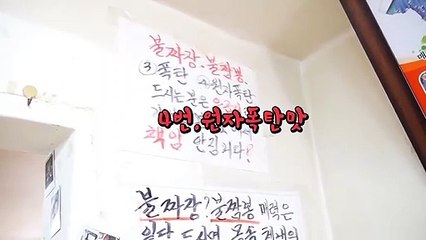 불짜장.불짬뽕.
③폭탄 ④원자폭탄
드시는분은
4번.원자폭탄맛
책임 안집니다?
불짜장?불짬뽕 매력은
일단 드시면 몸속